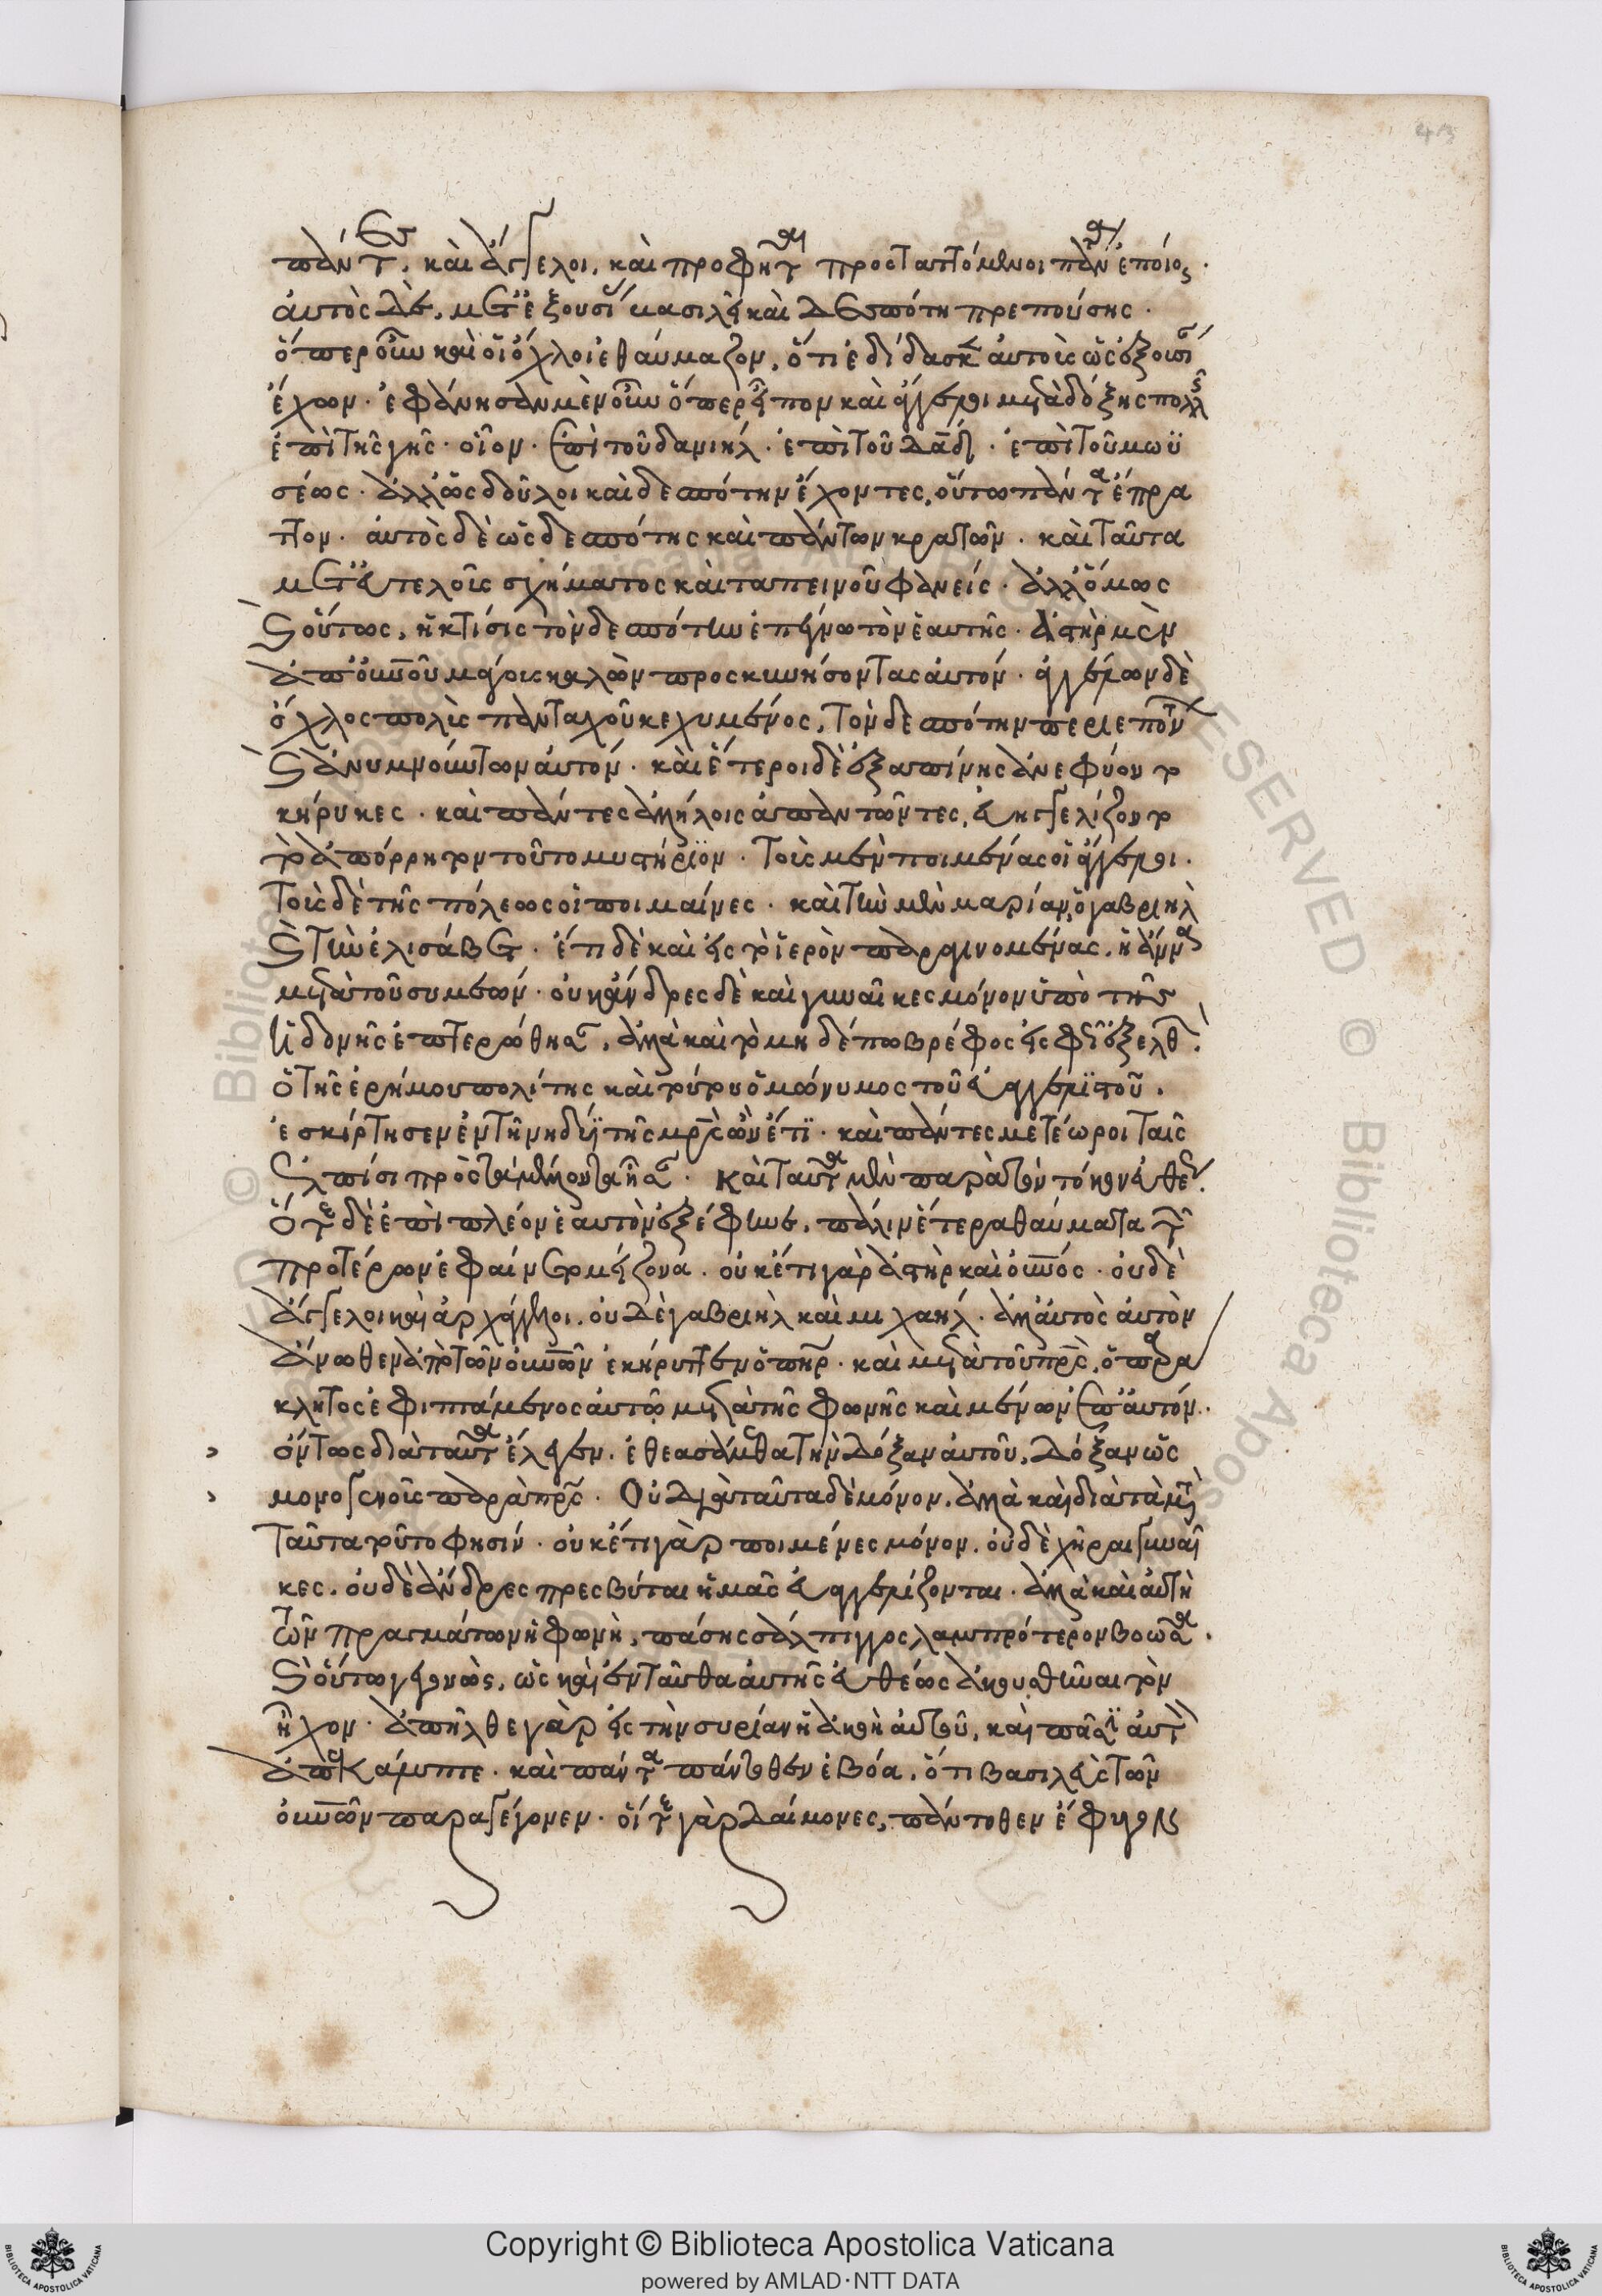 πάντες. καὶ ἄγγελοι. καὶ προφῆται προσταττόμενοι πάντα ἐποίουν.
αὐτὸς δὲ, μετ' ἐξουσίας βασιλεῖ καὶ δεσπότη πρεπούσης.
ὅπερ οὖν καὶ οἱ ὄχλοι ἐθαύμαζον, ὅτι ἐδίδασκεν αὐτοὺς ὡς ἐξουσίαν
ἔχων. ἐφάνησαν μὲν οὖν ὅπερ εἶπον καὶ ἄγγελοι μετὰ δόξης πολλῆς
ἐπὶ τῆς γῆς. οἷον. ἐπὶ τοῦ δανιήλ. ἐπὶ τοῦ δαδ. ἐπὶ τοῦ μωϋ
σέως. ἀλλ' ὡς δοῦλοι καὶ δεσπότην ἔχοντες, οὕτω πάντα ἔπρα
ττον. αὐτὸς δὲ ὡς δεσπότης καὶ πάντων κρατῶν. καὶ ταῦτα
μετ' εὐτελοῦς σχήματος καὶ ταπεινοῦ φανείς. ἀλλ' ὅμως
καὶ οὕτως, ἡ κτίσις τὸν δεσπότην ἐπέγνω τὸν ἑαυτῆς. ἀστὴρ μὲν
ἀπ' οὐνοῦ μάγους καλῶν προσκυνήσοντας αὐτόν. ἀγγέλων δὲ
ὄχλος πολὺς πανταχοῦ κεχυμένος, τὸν δεσπότην περιέπων
καὶ ἀνυμνούντων αὐτόν. καὶ ἕτεροι δὲ ἐξαπίνης ἀνεφύοντο
κήρυκες. καὶ πάντες ἀλλήλοις ἀπαντῶντες, εὐηγγελίζοντο
τὸ ἀπόρρητον τοῦτο μυστήριον. τοὺς μὲν ποιμένας οἱ ἄγγελοι.
τοὺς δὲ τῆς πόλεως οἱ ποιμαίνες. καὶ τὴν μὲν μαρίαν, ὁ γαβριὴλ
καὶ τὴν ἐλισάβετ. ἔτι δὲ καὶ εἰς τὸ ἱερὸν παραγινομένας. ἡ ἄννα
μετὰ τοῦ συμεών. οὐκ ἄνδρες δὲ καὶ γυναῖκες μόνον ὑπὸ τῆς
ἡδονῆς ἐπτερώθησαν, ἀλλὰ καὶ τὸ μηδέπω βρέφος εἰς φῶς ἐξελθόν.
ὁ τῆς ἐρήμου πολίτης καὶ τούτου ὁμώνυμος τοῦ εὐαγγελιστοῦ.
ἐσκίρτησεν ἐν τῇ νηδύϊ τῆς μρς ὢν ἔτι. καὶ πάντες μετέωροι ταῖς
ἐλπίσι πρὸς τὰ μέλλοντα ἦσαν. καὶ ταῦτα μὲν παρὰ τὸν τόκον εὐθέως.
ὅτε δὲ ἐπὶ πλέον ἑαυτὸν ἐξέφηνε, πάλιν ἕτερα θαύματα τῶν
προτέρων ἐφαίνετο μείζονα. οὐκέτι γὰρ ἀστὴρ καὶ οὐνός. οὐδὲ
ἄγγελοι καὶ ἀρχάγγελοι. οὐδὲ γαβριὴλ καὶ μιχαήλ. ἀλλ' αὐτὸς αὐτὸν
ἄνωθεν ἀπὸ τῶν οὐνῶν ἐκήρυττεν ὁ πηρ. καὶ μετὰ τοῦ πρς, ὁ παρά
κλητος ἐφιπτάμενος αὐτῷ μετὰ τῆς φωνῆς καὶ μένων ἐπ' αὐτόν.
ὄντως διὰ ταῦτα ἔλεγεν. ἐθεασάμεθα τὴν δόξαν αὐτοῦ, δόξαν ὡς
μονογενοῦς παρὰ πρς. Οὐ διὰ ταῦτα δὲ μόνον, ἀλλὰ καὶ διὰ τὰ μετὰ
ταῦτα τοῦτο φησίν. οὐκέτι γὰρ ποιμένες μόνον. οὐδὲ χῆραι γυναῖ
κες. οὐδὲ ἄνδρες πρεσβύται ἡμᾶς εὐαγγελίζονται. ἀλλὰ καὶ αὐτὴ
τῶν πραγμάτων ἡ φωνὴ, πάσης σάλπιγγος λαμπρότερον βοῶσα.
καὶ οὕτω γεγονὼς, ὡς καὶ ἐνταῦθα αὐτῆς εὐθέως ἀκουσθῆναι τὸν
ἦχον. ἀπῆλθε γὰρ εἰς τὴν συρίαν ἡ ἀκοὴ αὐτοῦ, καὶ πᾶσιν αὐτὸν
ἀπεκάλυπτε. καὶ πάντα πάντοθεν ἐβόα. ὅτι βασιλεὺς τῶν
οὐνῶν παραγέγονεν. οἵ τε γὰρ δαίμονες, πάντοθεν ἔφευγον